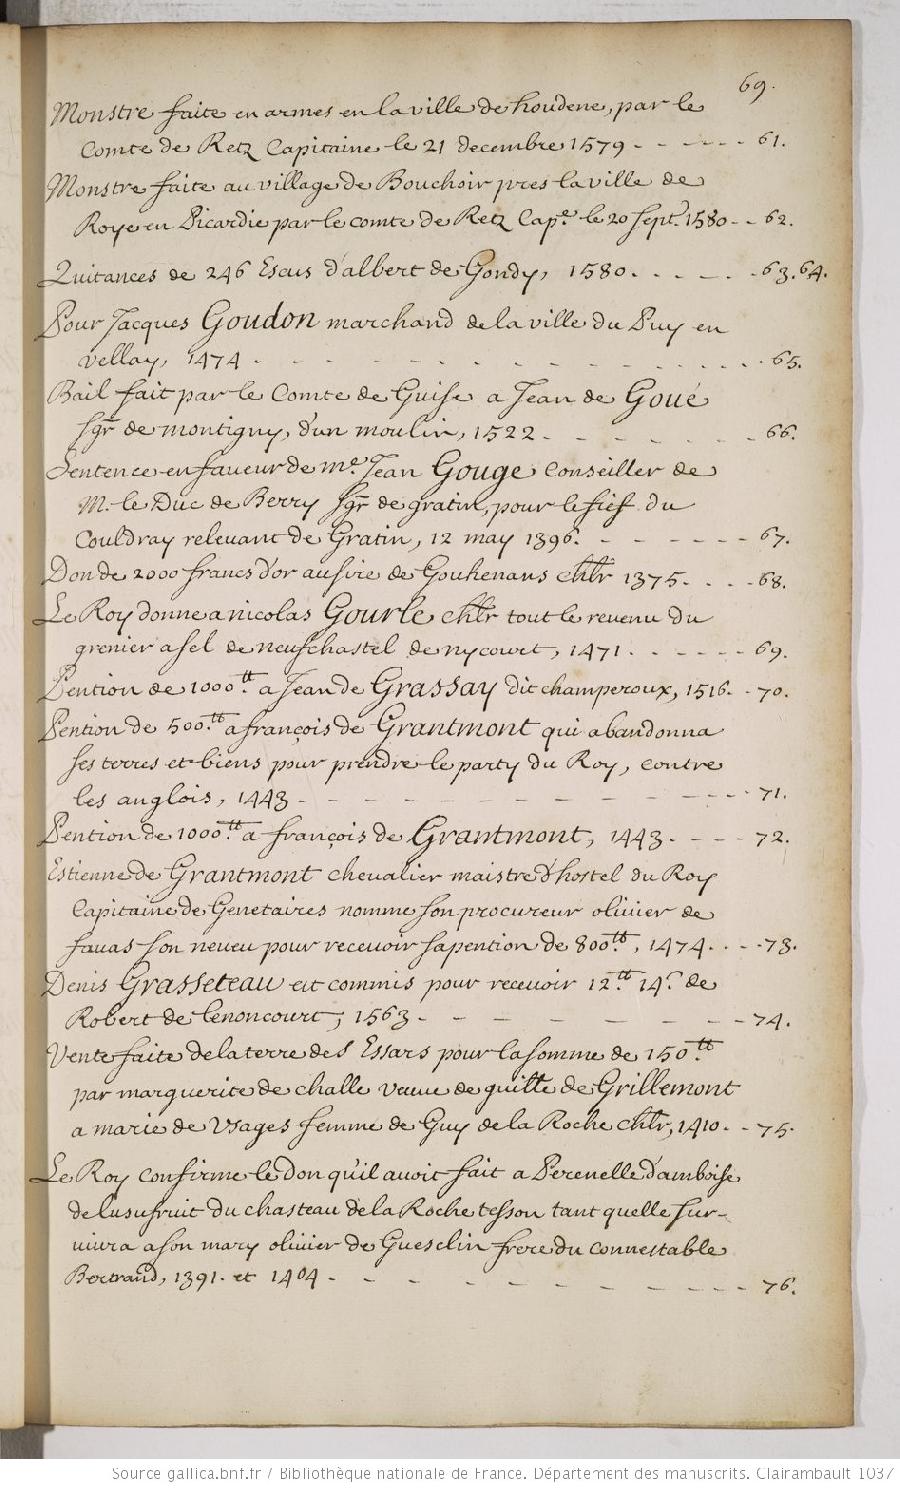 69.
Monstre faite en armes en la ville de houdene, par le
Comte de Retz Capitaine le 21 decembre 1579 - - - - - - 61.
Monstre faite au village de Bouchoir pres la ville de
Roye en Picardie par le comte de Retz Cap.ne le 20 sept.e 1580 - - 62.
Quitances de 246 Escus d'albert de Gondy, 1580. . . - - . 63. 64.
Pour Jacques Goudon marchand de la ville du Puy en
vellay, 1474 - - - - - - - - - . . . . . . 65.
Bail fait par le Comte de Guise a Jean de Goué
sgr de montigny, d'un moulin, 1522 - - - - - - - - 66.
Sentence en faveur de me. Jean Gouge Conseiller de
M. le Duc de Berry sgr de gratin, pour le fief du
Couldray relevant de Gratin, 12 may 1396. - - - - - - - 67.
Don de 2000 francs d'or au sire de Gouhenans chlr 1375. . . . 68.
Le Roy donne a nicolas Gourle chlr tout le revenu du
grenier a sel de neufchastel de nycourt, 1471 . - - - - - 69.
Pention de 1000.tt a Jean de Grassay dit champeroux, 1516. . 70.
Pention de 500.tt a françois de Grantmont qui abandonna
ses terres et biens pour prendre le party du Roy, contre
les anglois, 1443 - - - - - - - - - - - - - 71.
Pention de 1000.tt a françois de Grantmont, 1443. - - - - 72.
Estienne de Grantmont chevalier maistre d'hostel du Roy
Capitaine de Genetaires nomme son procureur olivier de
favas son neveu pour recevoir sa pention de 800.tt, 1474. . - - 73.
Denis Grasseteau est commis pour recevoir 12.tt 14.s de
Robert de lenoncourt, 1563 - - - - - - - - - 74.
Vente faite de la terre des Essars pour la somme de 150.tt
par marguerite de challe veuve de guille de Grillemont
a marie de Usages femme de Guy de la Roche chlr, 1410. - - 75.
Le Roy confirme le don qu'il avoit fait a Perenelle d'amboise
de lusufruit du chasteau de la Roche tesson tant quelle sur-
vivra a son mary olivier de Guesclin frere du connestable
Bertrand, 1391. et 1404 - - - - - - - - - - - - 76.
Source gallica.bnf.fr / Bibliothèque nationale de France. Département des manuscrits. Clairambault 1037